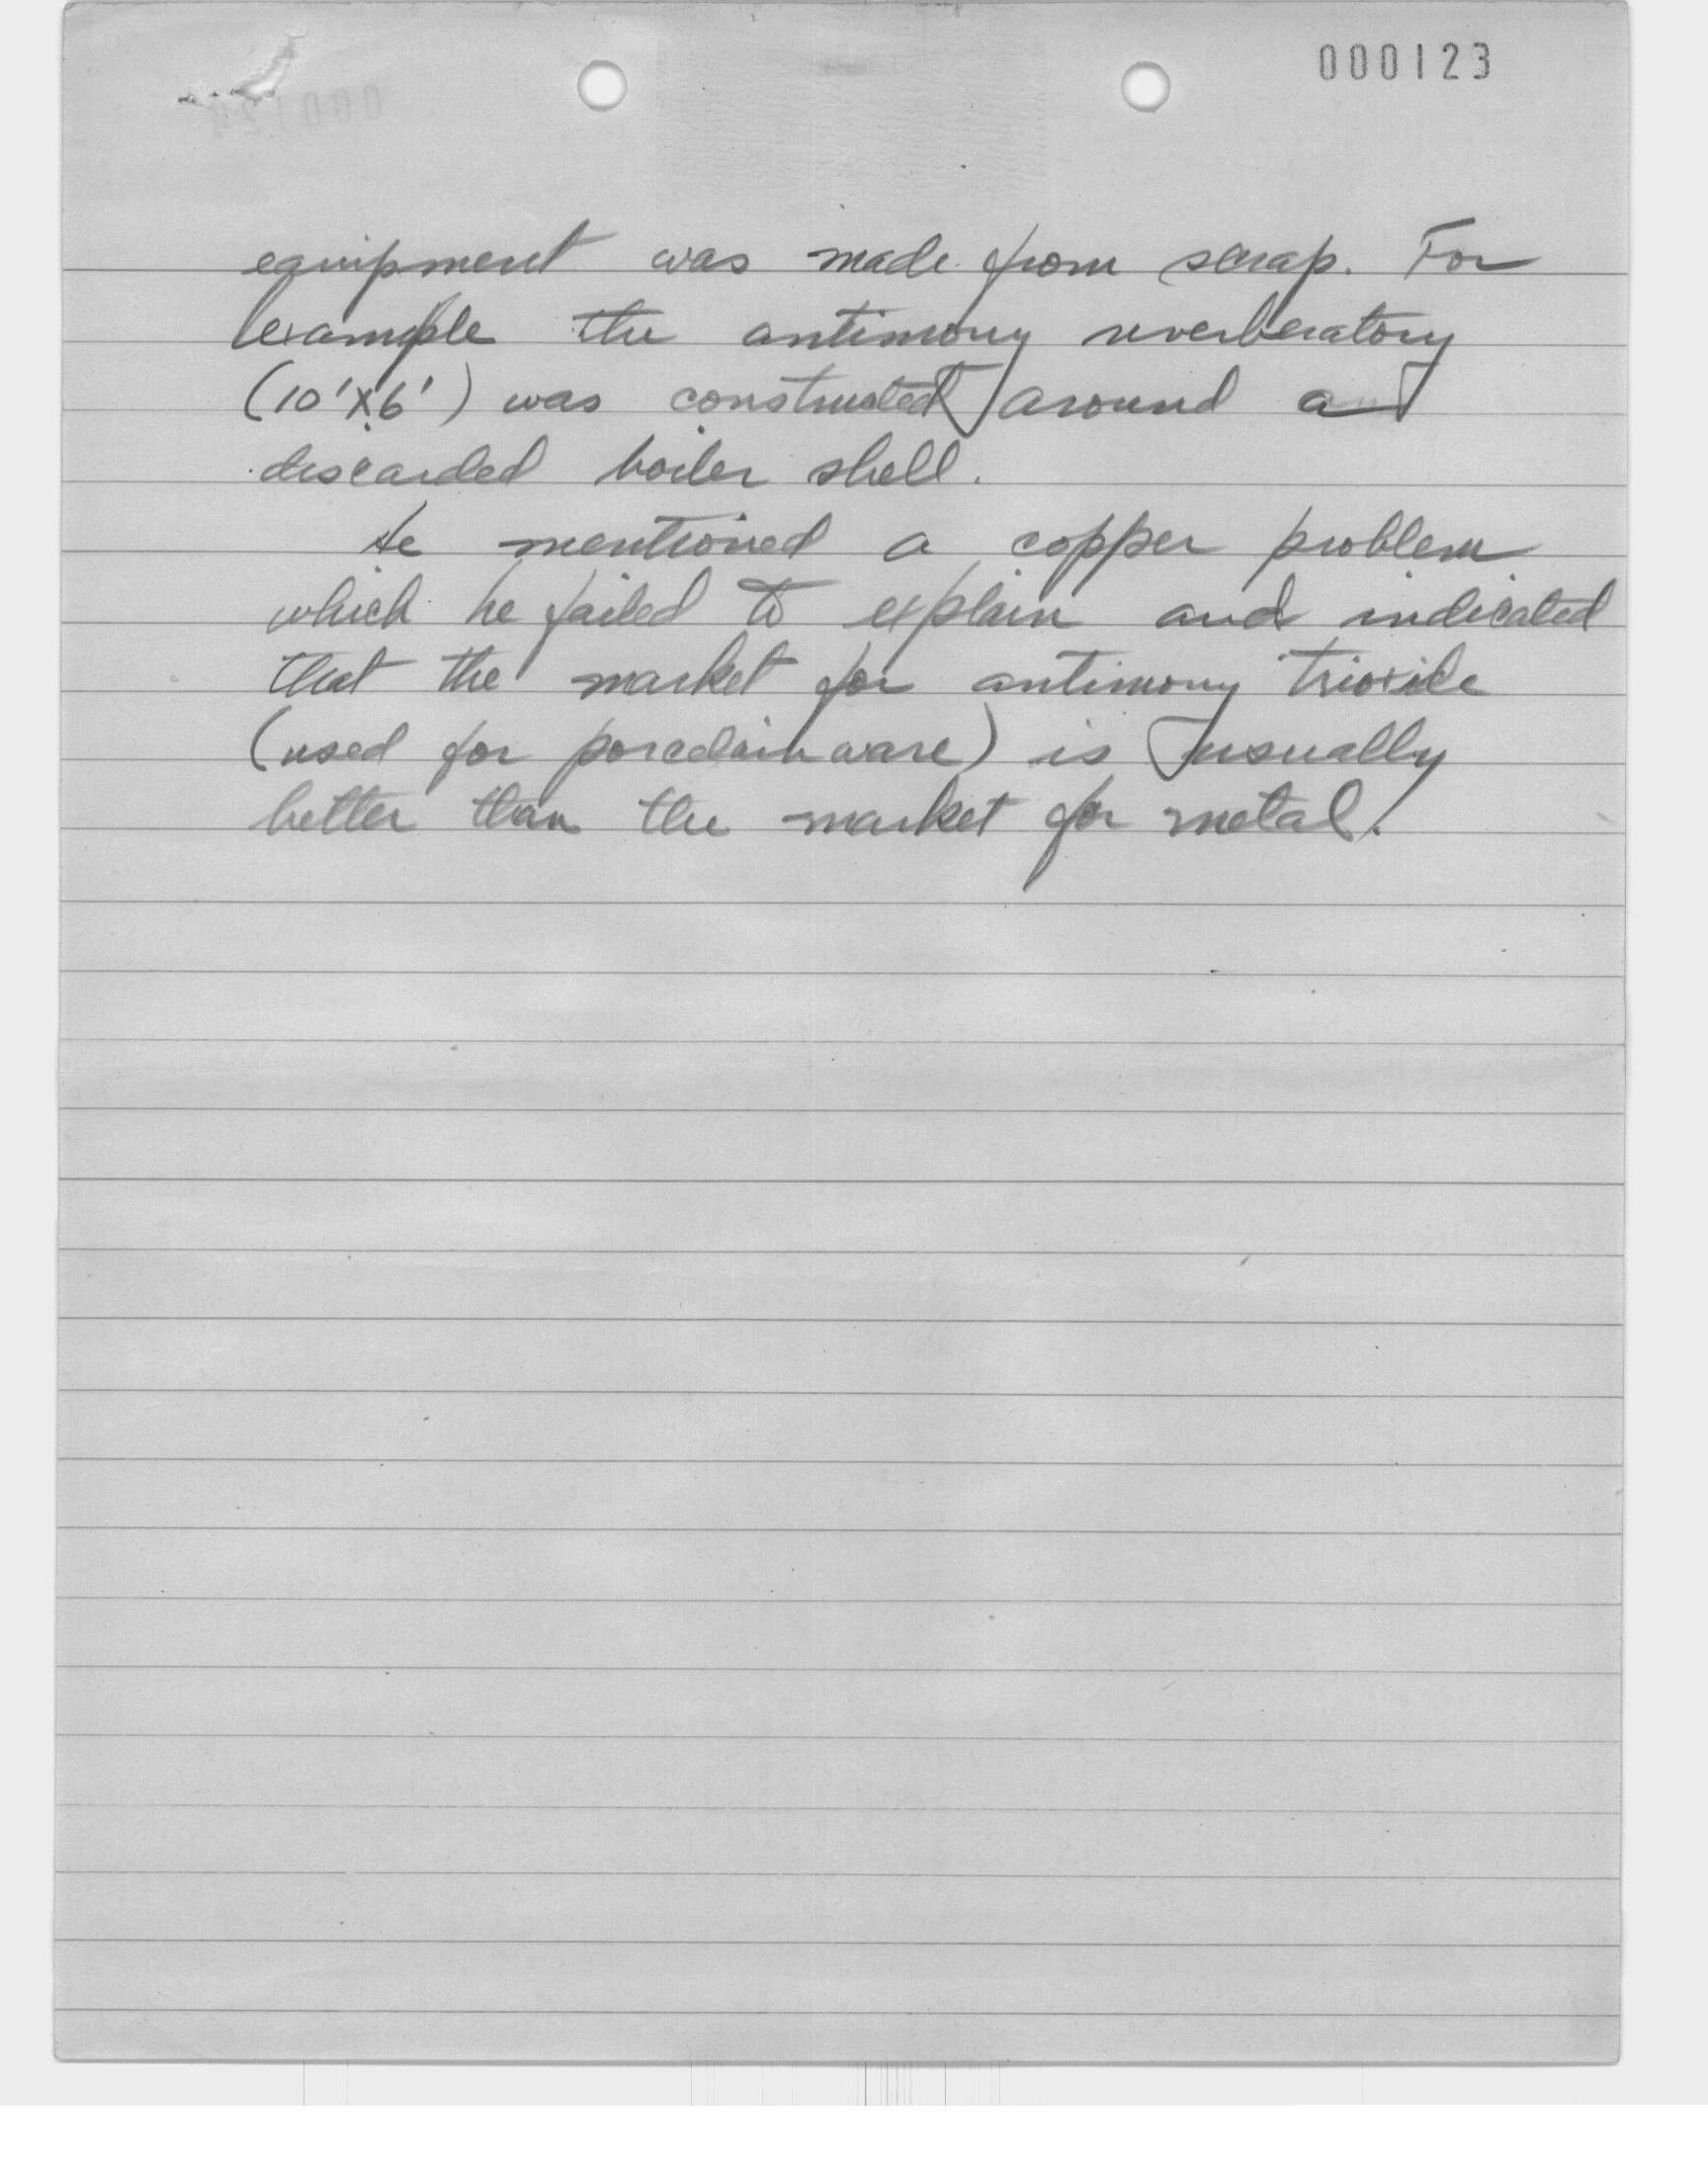 000123
equipment was made from scrap. For
example the antimony reverberatory
(10'X6') was constructed around a
discarded boiler shell.
He mentioned a copper problem
which he failed to explain and indicated
that the market for antimony trioxide
(used for porcelainware) is usually
better than the market for metal.